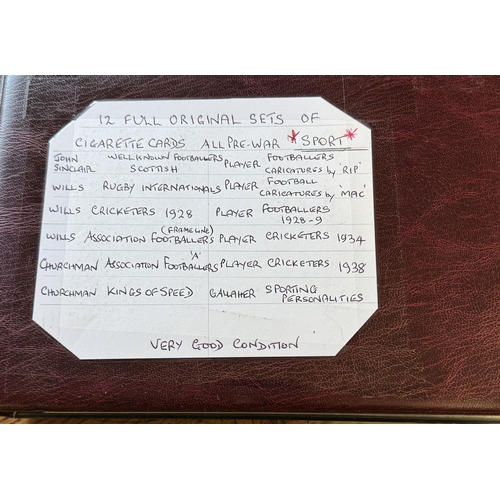 12 FULL ORIGINAL SETS OF
CIGARETTE CARDS ALL PRE-WAR *SPORT*
JOHN SINCLAIR WELL KNOWN FOOTBALLERS SCOTTISH
PLAYER FOOTBALLERS CARICATURES by 'RIP'
WILLS RUGBY INTERNATIONALS
PLAYER FOOTBALL CARICATURES by 'MAC'
WILLS CRICKETERS 1928
PLAYER FOOTBALLERS 1928-9
WILLS ASSOCIATION FOOTBALLERS (FRAMELINE)
PLAYER CRICKETERS 1934
CHURCHMAN ASSOCIATION FOOTBALLERS 'A'
PLAYER CRICKETERS 1938
CHURCHMAN KINGS OF SPEED
GALLAHER SPORTING PERSONALITIES
VERY GOOD CONDITION